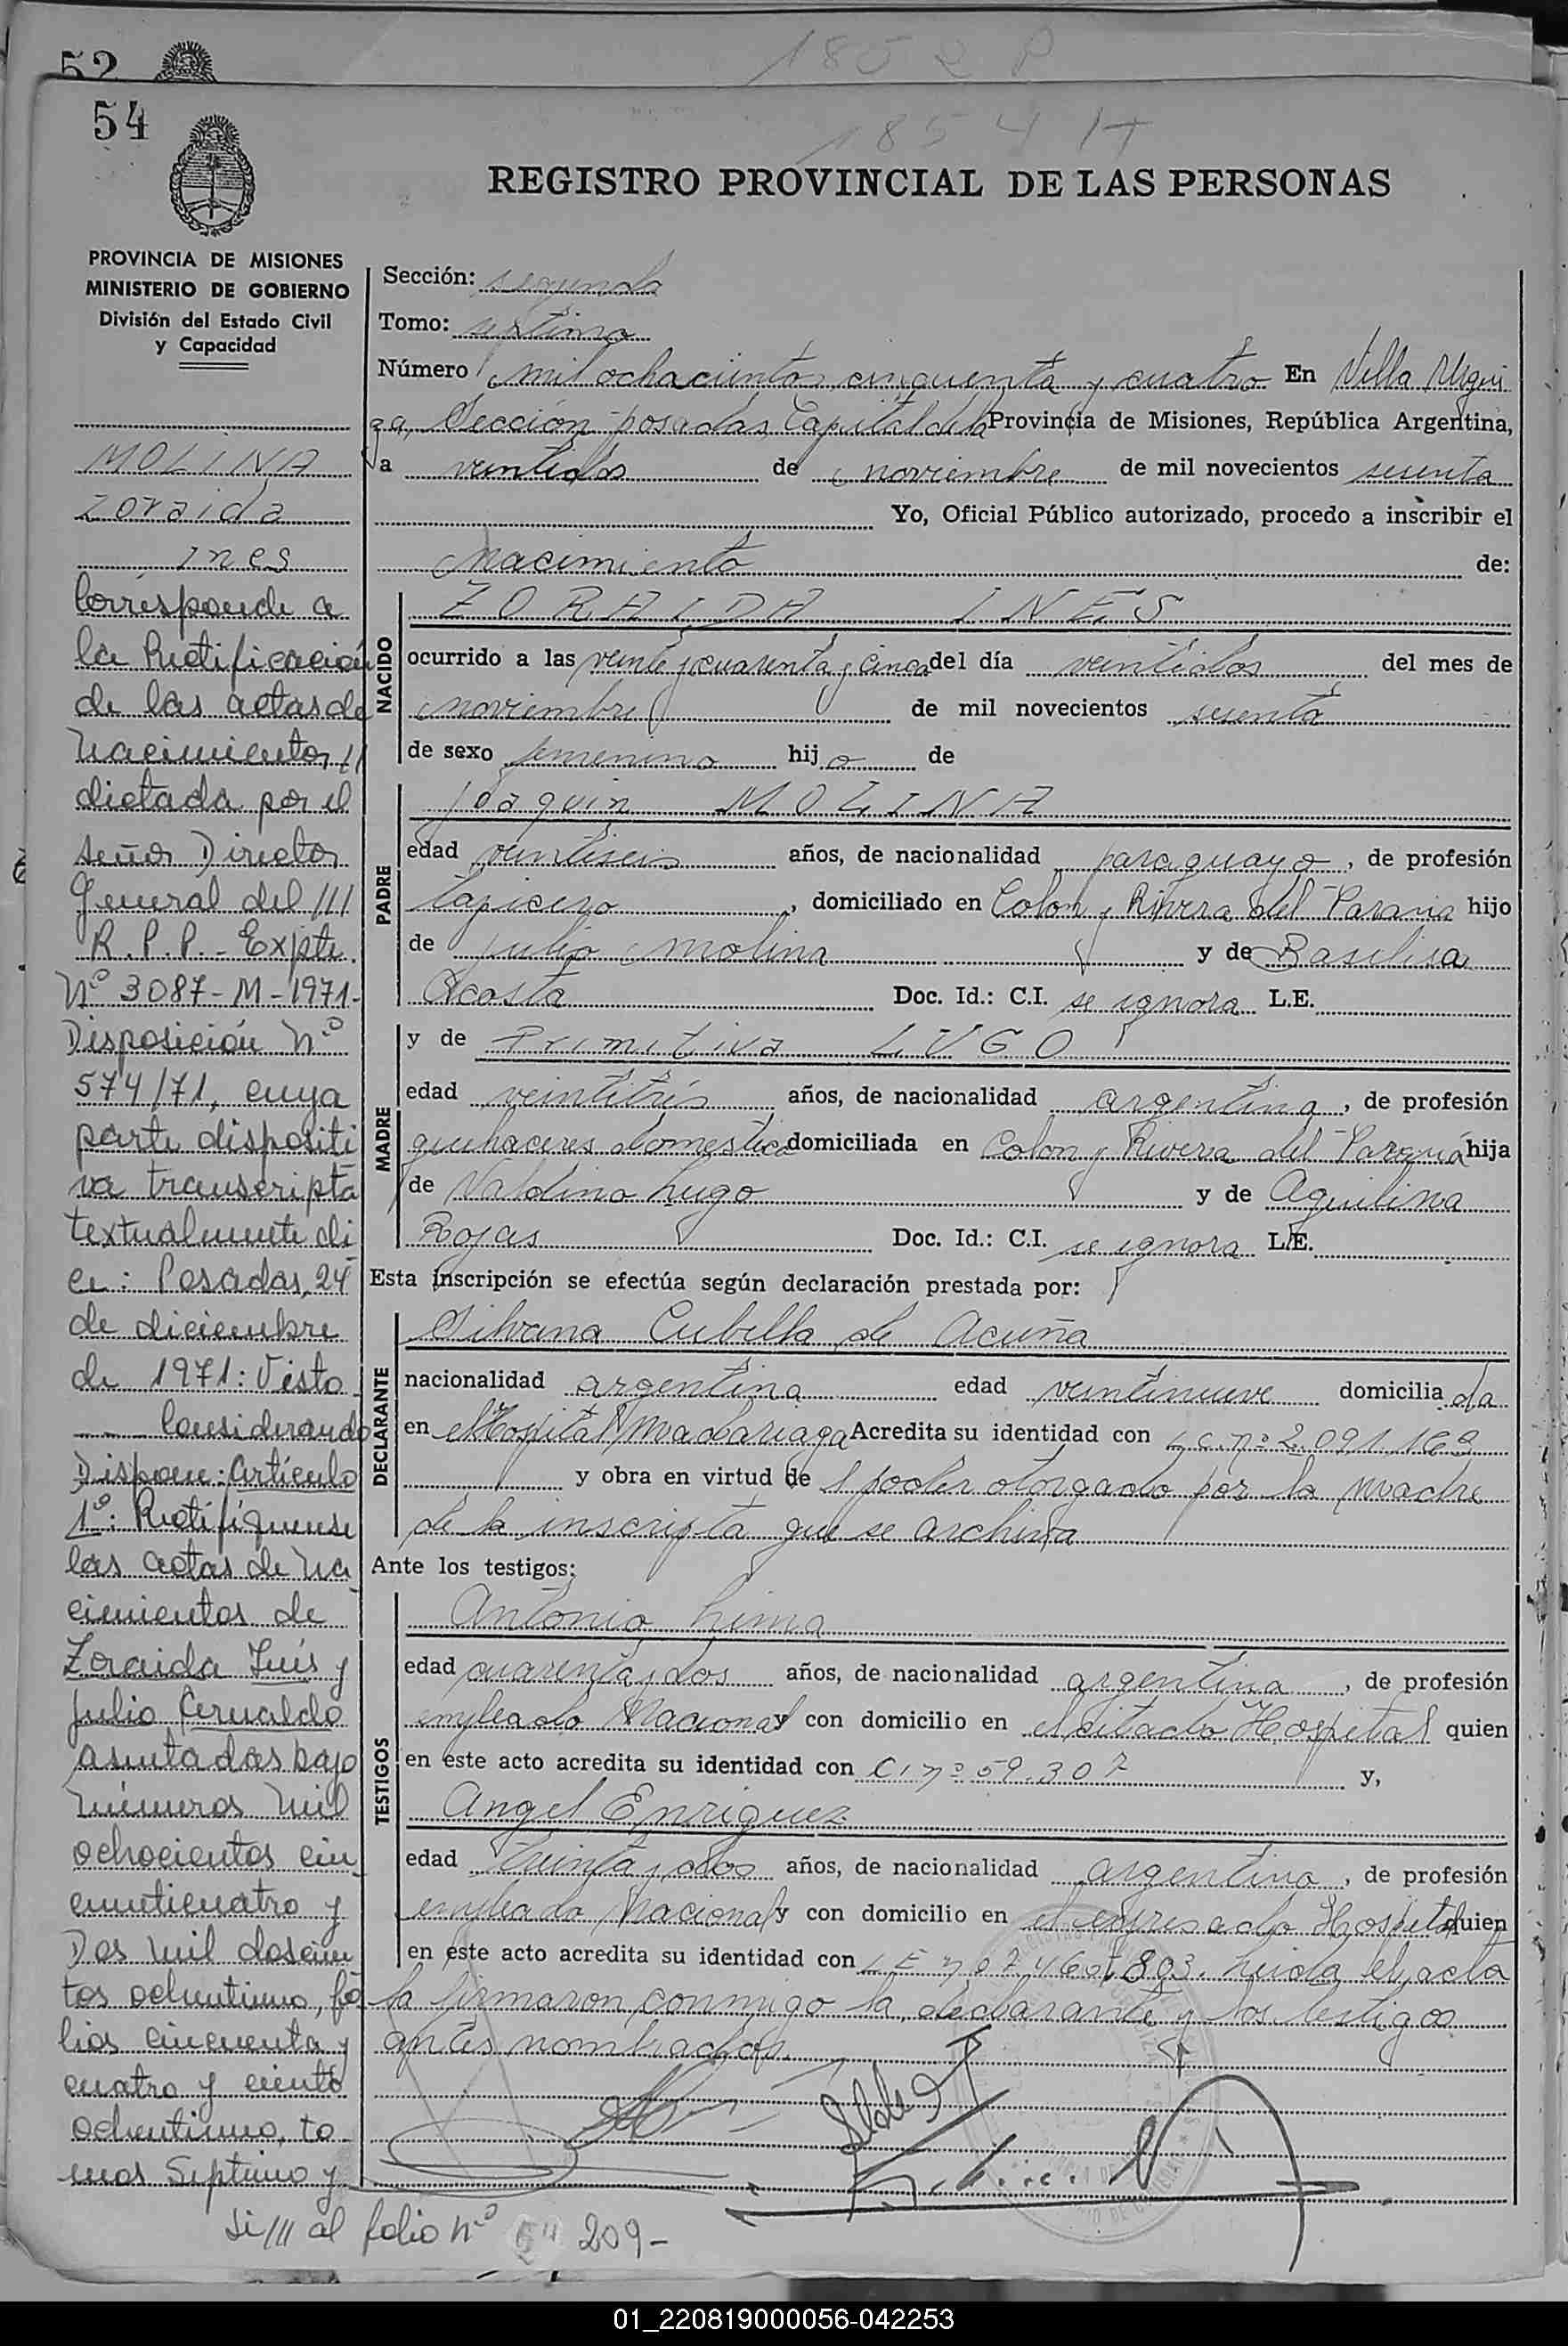 52
1852 P
54
1854 H
REGISTRO PROVINCIAL DE LAS PERSONAS
PROVINCIA DE MISIONES
MINISTERIO DE GOBIERNO
División del Estado Civil
y Capacidad
MOLINA
Zoraida
Ines
Corresponde a
la Rectificación
de las actas de
Nacimientos //
dictada por el
señor Director
General del ///
R.P.P.- Expte.
Nº 3087-M-1971-
Disposición Nº
574/71, cuya
parte dispositi
va transcripta
textualmente di
ce: Posadas, 24
de diciembre
de 1971: Visto
Considerando
Dispone: Artículo
1º: Rectifíquense
las actas de na
cimientos de
Zoraida Inés y
Julio Arnaldo
asentadas bajo
números mil
ochocientos cin
cuenticuatro y
Dos mil doscien
tos ochentiuno, fo
lios cincuenta y
cuatro y ciento
ochentiuno, to
mos Septimo y
Si/// al folio nº 209-
Sección: segunda
Tomo: septimo
Número mil ochocientos cinquenta y cuatro En Villa Urqui
za, Sección posadas, Capital de la Provincia de Misiones, República Argentina,
a veintidos de noviembre de mil novecientos sesenta
Yo, Oficial Público autorizado, procedo a inscribir el
Nacimiento de:
NACIDO
ZORAIDA INES
ocurrido a las veinte y cuarenta y cinco del día veintidos del mes de
noviembre de mil novecientos sesenta
de sexo femenino hija de
PADRE
Joaquin MOLINA
edad veintiseis años, de nacionalidad paraguayo, de profesión
tapicero, domiciliado en Colon y Rivera del Parana hijo
de Julio Molina y de Basilisa
Acosta Doc. Id.: C.I. se ignora L.E.
MADRE
y de Primitiva LUGO
edad veintitrés años, de nacionalidad argentina, de profesión
quehaceres domestico domiciliada en Colon y Rivera del Paraná hija
de Valdino Lugo y de Aquilina
Rojas Doc. Id.: C.I. se ignora L.E.
Esta inscripción se efectúa según declaración prestada por:
DECLARANTE
Silvana Cubilla de Acuña
nacionalidad argentina edad veintinueve domiciliada
en el Hospital Madariaga Acredita su identidad con L.C. nº 2.091.169
y obra en virtud de poder otorgado por la madre
de la inscripta que se archiva
Ante los testigos:
TESTIGOS
Antonio Lima
edad cuarenta y dos años, de nacionalidad argentina, de profesión
empleado Nacional y con domicilio en el citado Hospital quien
en este acto acredita su identidad con C.I. nº 59.307 y,
Angel Enriquez
edad treinta y dos años, de nacionalidad argentina, de profesión
empleado Nacional y con domicilio en el expresado Hospital quien
en este acto acredita su identidad con L E nº 7.460.803. Leida el acta
la firmaron conmigo la declarante y los testigos
antes nombrados.
01_220819000056-042253